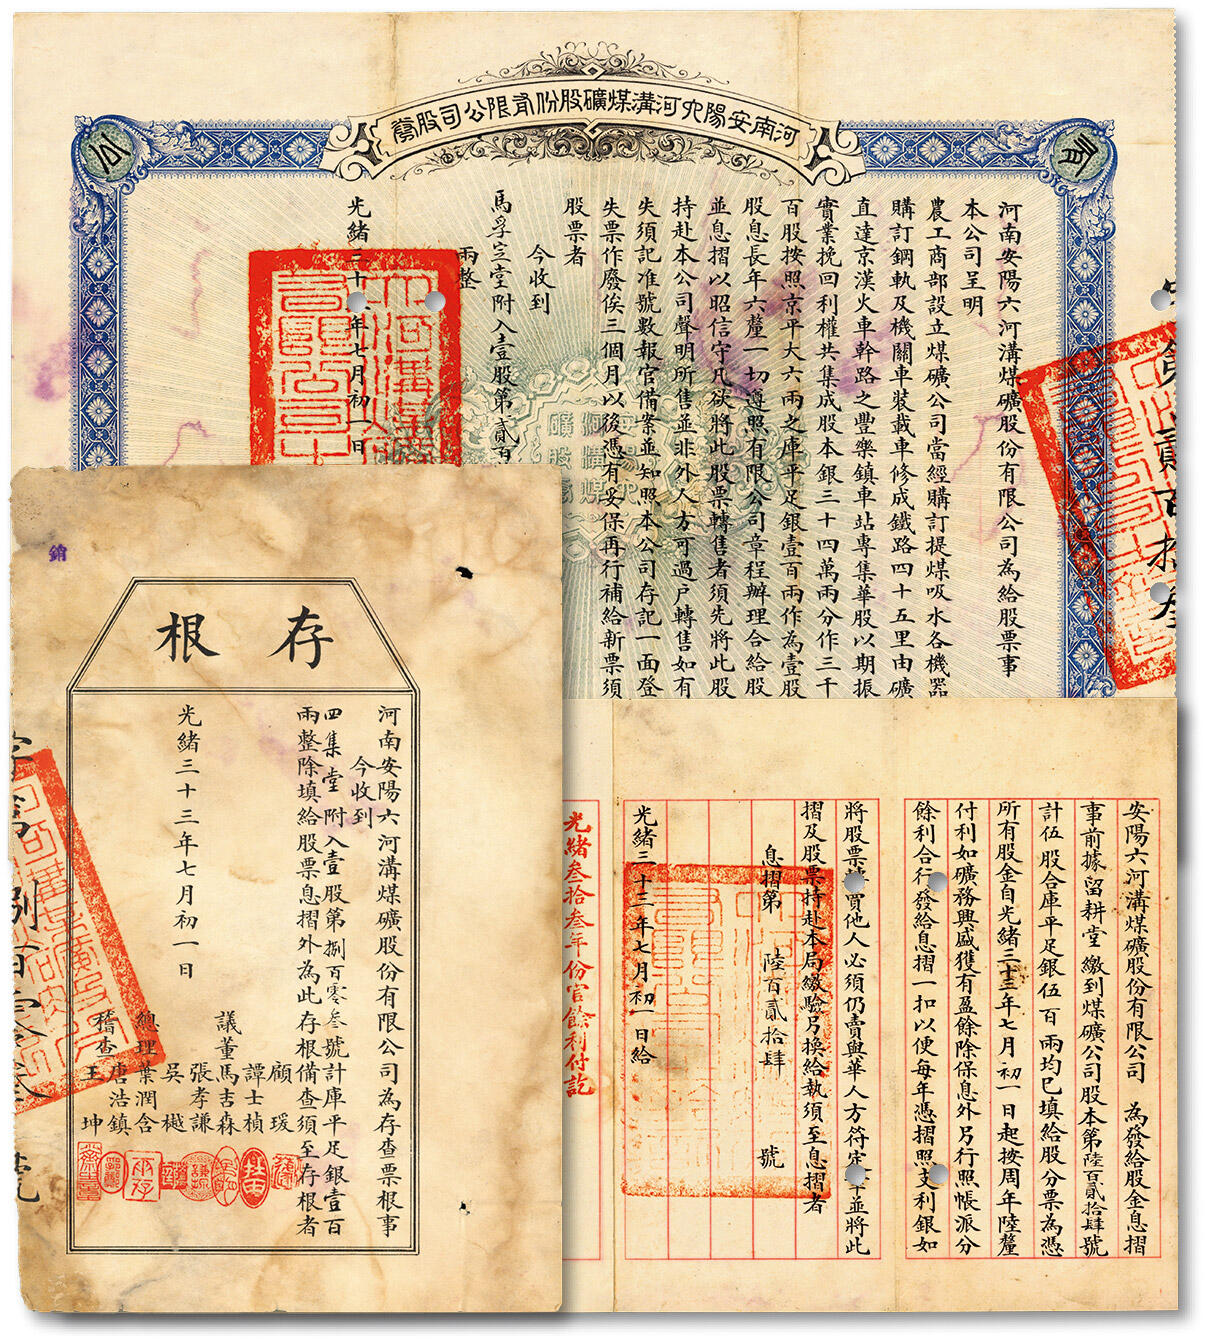 河南安陽六河溝煤礦股份有限公司股票
有
公
河南安陽六河溝煤礦股份有限公司為給股票事
本公司呈明
農工商部設立煤礦公司當經購訂提煤吸水各機器
購訂鋼軌及機關車裝載車修成鐵路四十五里由礦
直達京漢火車幹路之豐樂鎮車站專集華股以期振
實業挽回利權共集成股本銀三十四萬兩分作三千
百股按照京平大六兩之庫平足銀壹百兩作為壹股
股息長年六釐一切遵照有限公司章程辦理合給股
並息摺以昭信守凡欲將此股票轉售者須先將此股
持赴本公司聲明所售並非外人方可過戶轉售如有
失須記准號數報官備案並知照本公司存記一面登
失票作廢俟三個月以後憑有妥保再行補給新票須
股票者
今收到
馬孚堂附入壹股第貳百
兩整
光緒三十三年七月初一日
第貳百拾叁
銷
存根
河南安陽六河溝煤礦股份有限公司為存查票根事
今收到
四集堂附入壹股第捌百零叁號計庫平足銀壹百
兩整除填給股票息摺外為此存根備查須至存根者
光緒三十三年七月初一日
顧瑗
譚士楨
議董馬吉森
張孝謙
吳樾
總理葉潤含
唐浩鎮
稽查王坤
字第捌百零叁號
安陽六河溝煤礦股份有限公司為發給股金息摺
事前據留耕堂繳到煤礦公司股本第陸百貳拾肆號
計伍股合庫平足銀伍百兩均已填給股分票為憑
所有股金自光緒三十三年七月初一日起按周年陸釐
付利如礦務興盛獲有盈餘除保息外另行照帳派分
餘利合行發給息摺一扣以便每年憑摺照支利銀如
將股票轉買他人必須仍賣與華人方符定章並將此
摺及股票持赴本局繳驗另換給執須至息摺者
息摺第陸百貳拾肆號
光緒三十三年七月初一日給
光緒叁拾叁年份官餘利付訖